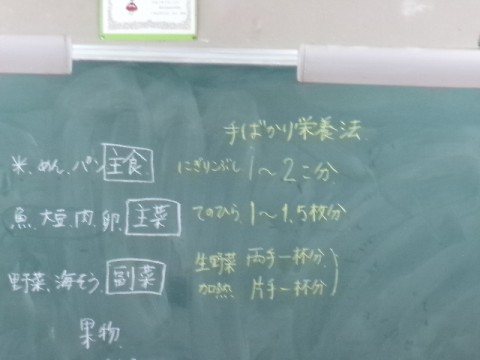 手ばかり栄養法
米、めん、パン 主食 にぎりこぶし 1～2コ分
魚、大豆、肉、卵、主菜 てのひら、1～1.5枚分
野菜、海そう、副菜 生野菜 両手一杯分、
加熱 片手一杯分
果物